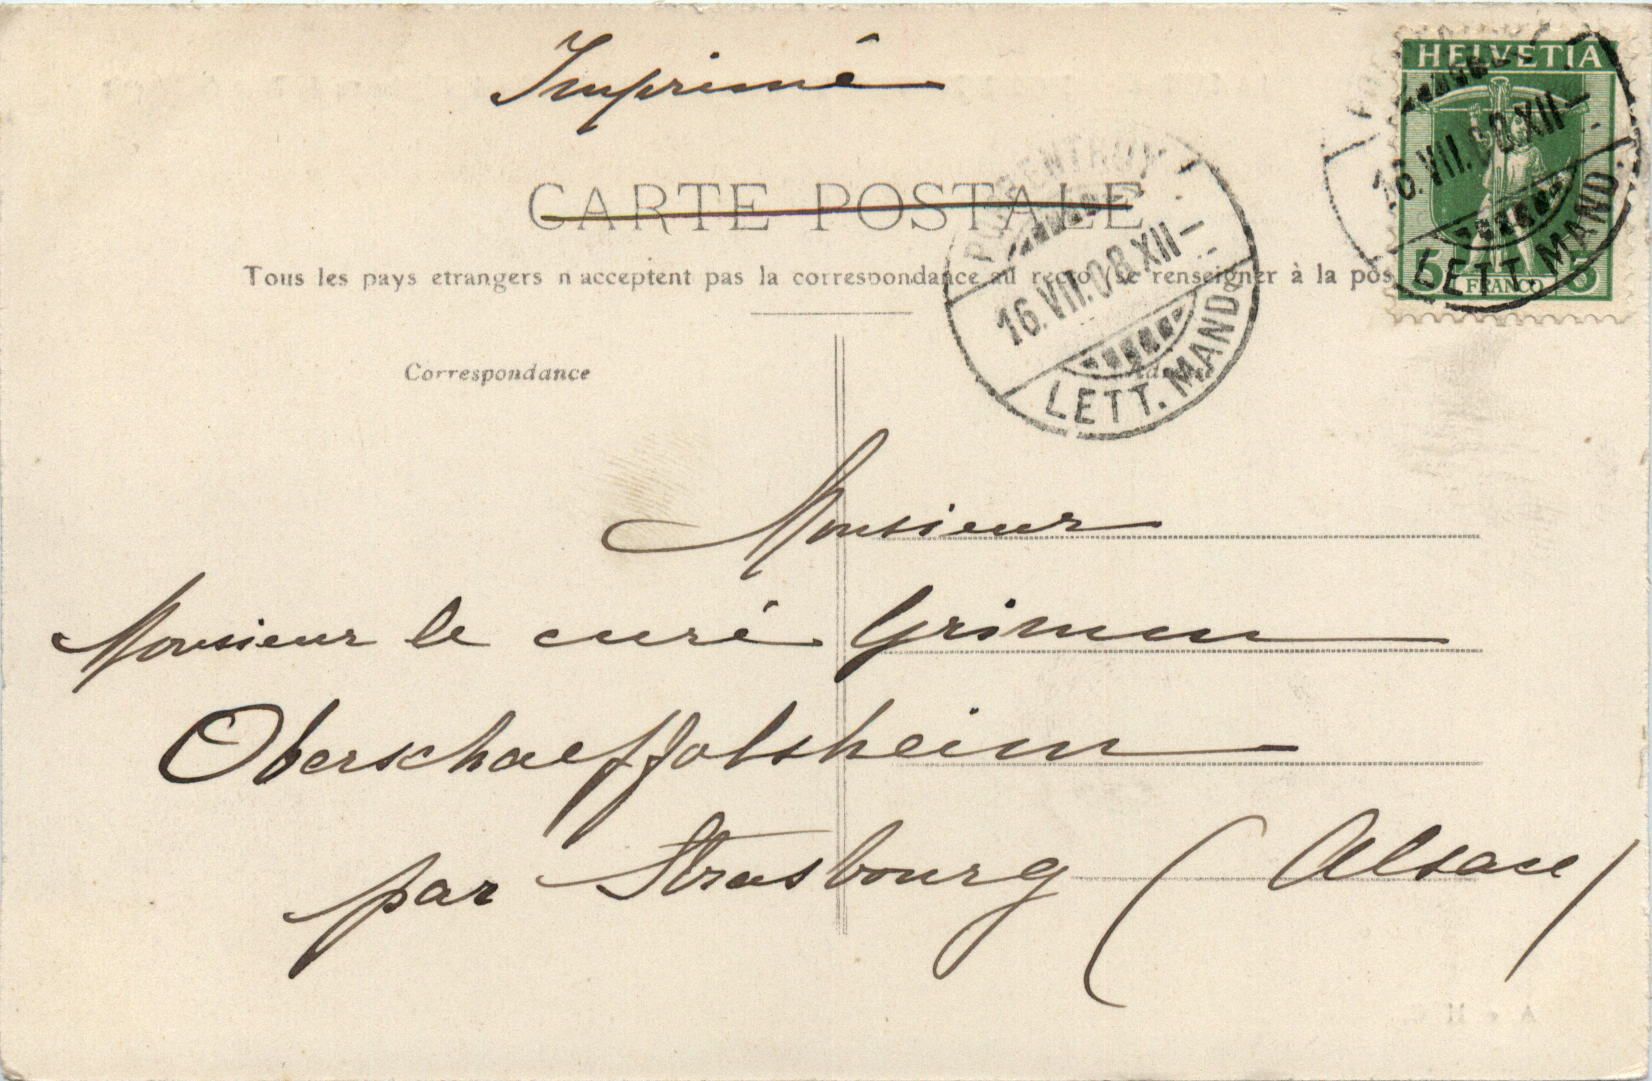 Imprimé
HELVETIA
CARTE POSTALE
PORRENTRUY
16.VII.08.XII-
LETT. MAND.
16.VII.08.XII-
LETT. MAND.
5 FRANCO 5
Tous les pays etrangers n acceptent pas la correspondance au recto (se renseigner à la pos
Correspondance
Monsieur
Monsieur le curé Grimm
Oberschaeffolsheim
par Strasbourg (Alsace)